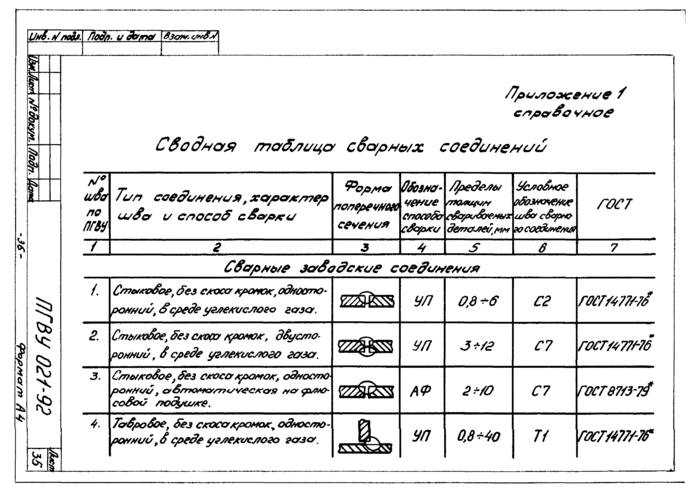 Инв. N подл. Подп. и дата Взам. инв. N
Изм. Лист № докум. Подп. Дата
Приложение 1
справочное
Сводная таблица сварных соединений
№ шва по ПГВУ
Тип соединения, характер шва и способ сварки
Форма поперечного сечения
Обозна-
чение
способа
сварки
Пределы
толщин
свариваемых
деталей, мм
Условное
обозначение
шва сварно
го соединения
ГОСТ
1 2 3 4 5 6 7
Сварные заводские соединения
1. Стыковое, без скоса кромок, односто-
ронний, в среде углекислого газа.
УП 0,8÷6 С2 ГОСТ 14771-76*
2. Стыковое, без скоса кромок, двусто-
ронний, в среде углекислого газа.
УП 3÷12 С7 ГОСТ 14771-76*
3. Стыковое, без скоса кромок, односто-
ронний, автоматическая на флю-
совой подушке.
АФ 2÷10 С7 ГОСТ 8713-79*
4. Тавровое, без скоса кромок, односто-
ронний, в среде углекислого газа.
УП 0,8÷40 Т1 ГОСТ 14771-76*
-36-
ПГВУ 021-92
Формат А4
Лист
35